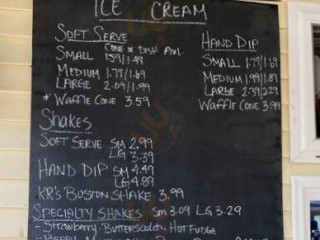 ICE CREAM
SOFT SERVE
CONE or DISH AVL.
SMALL 1.59/1.49
MEDIUM 1.79/1.69
LARGE 2.09/1.99
* WAFFLE CONE 3.59
HAND DIP
SMALL 1.79/1.69
MEDIUM 1.99/1.89
LARGE 2.39/2.29
WAFFLE CONE 3.99
Shakes
SOFT SERVE SM 2.99
LG 3.39
HAND DIP SM 4.49
LG 4.89
KR'S BOSTON SHAKE 3.99
SPECIALTY SHAKES SM 3.09 LG 3.29
- Strawberry, Butterscotch, Hot Fudge